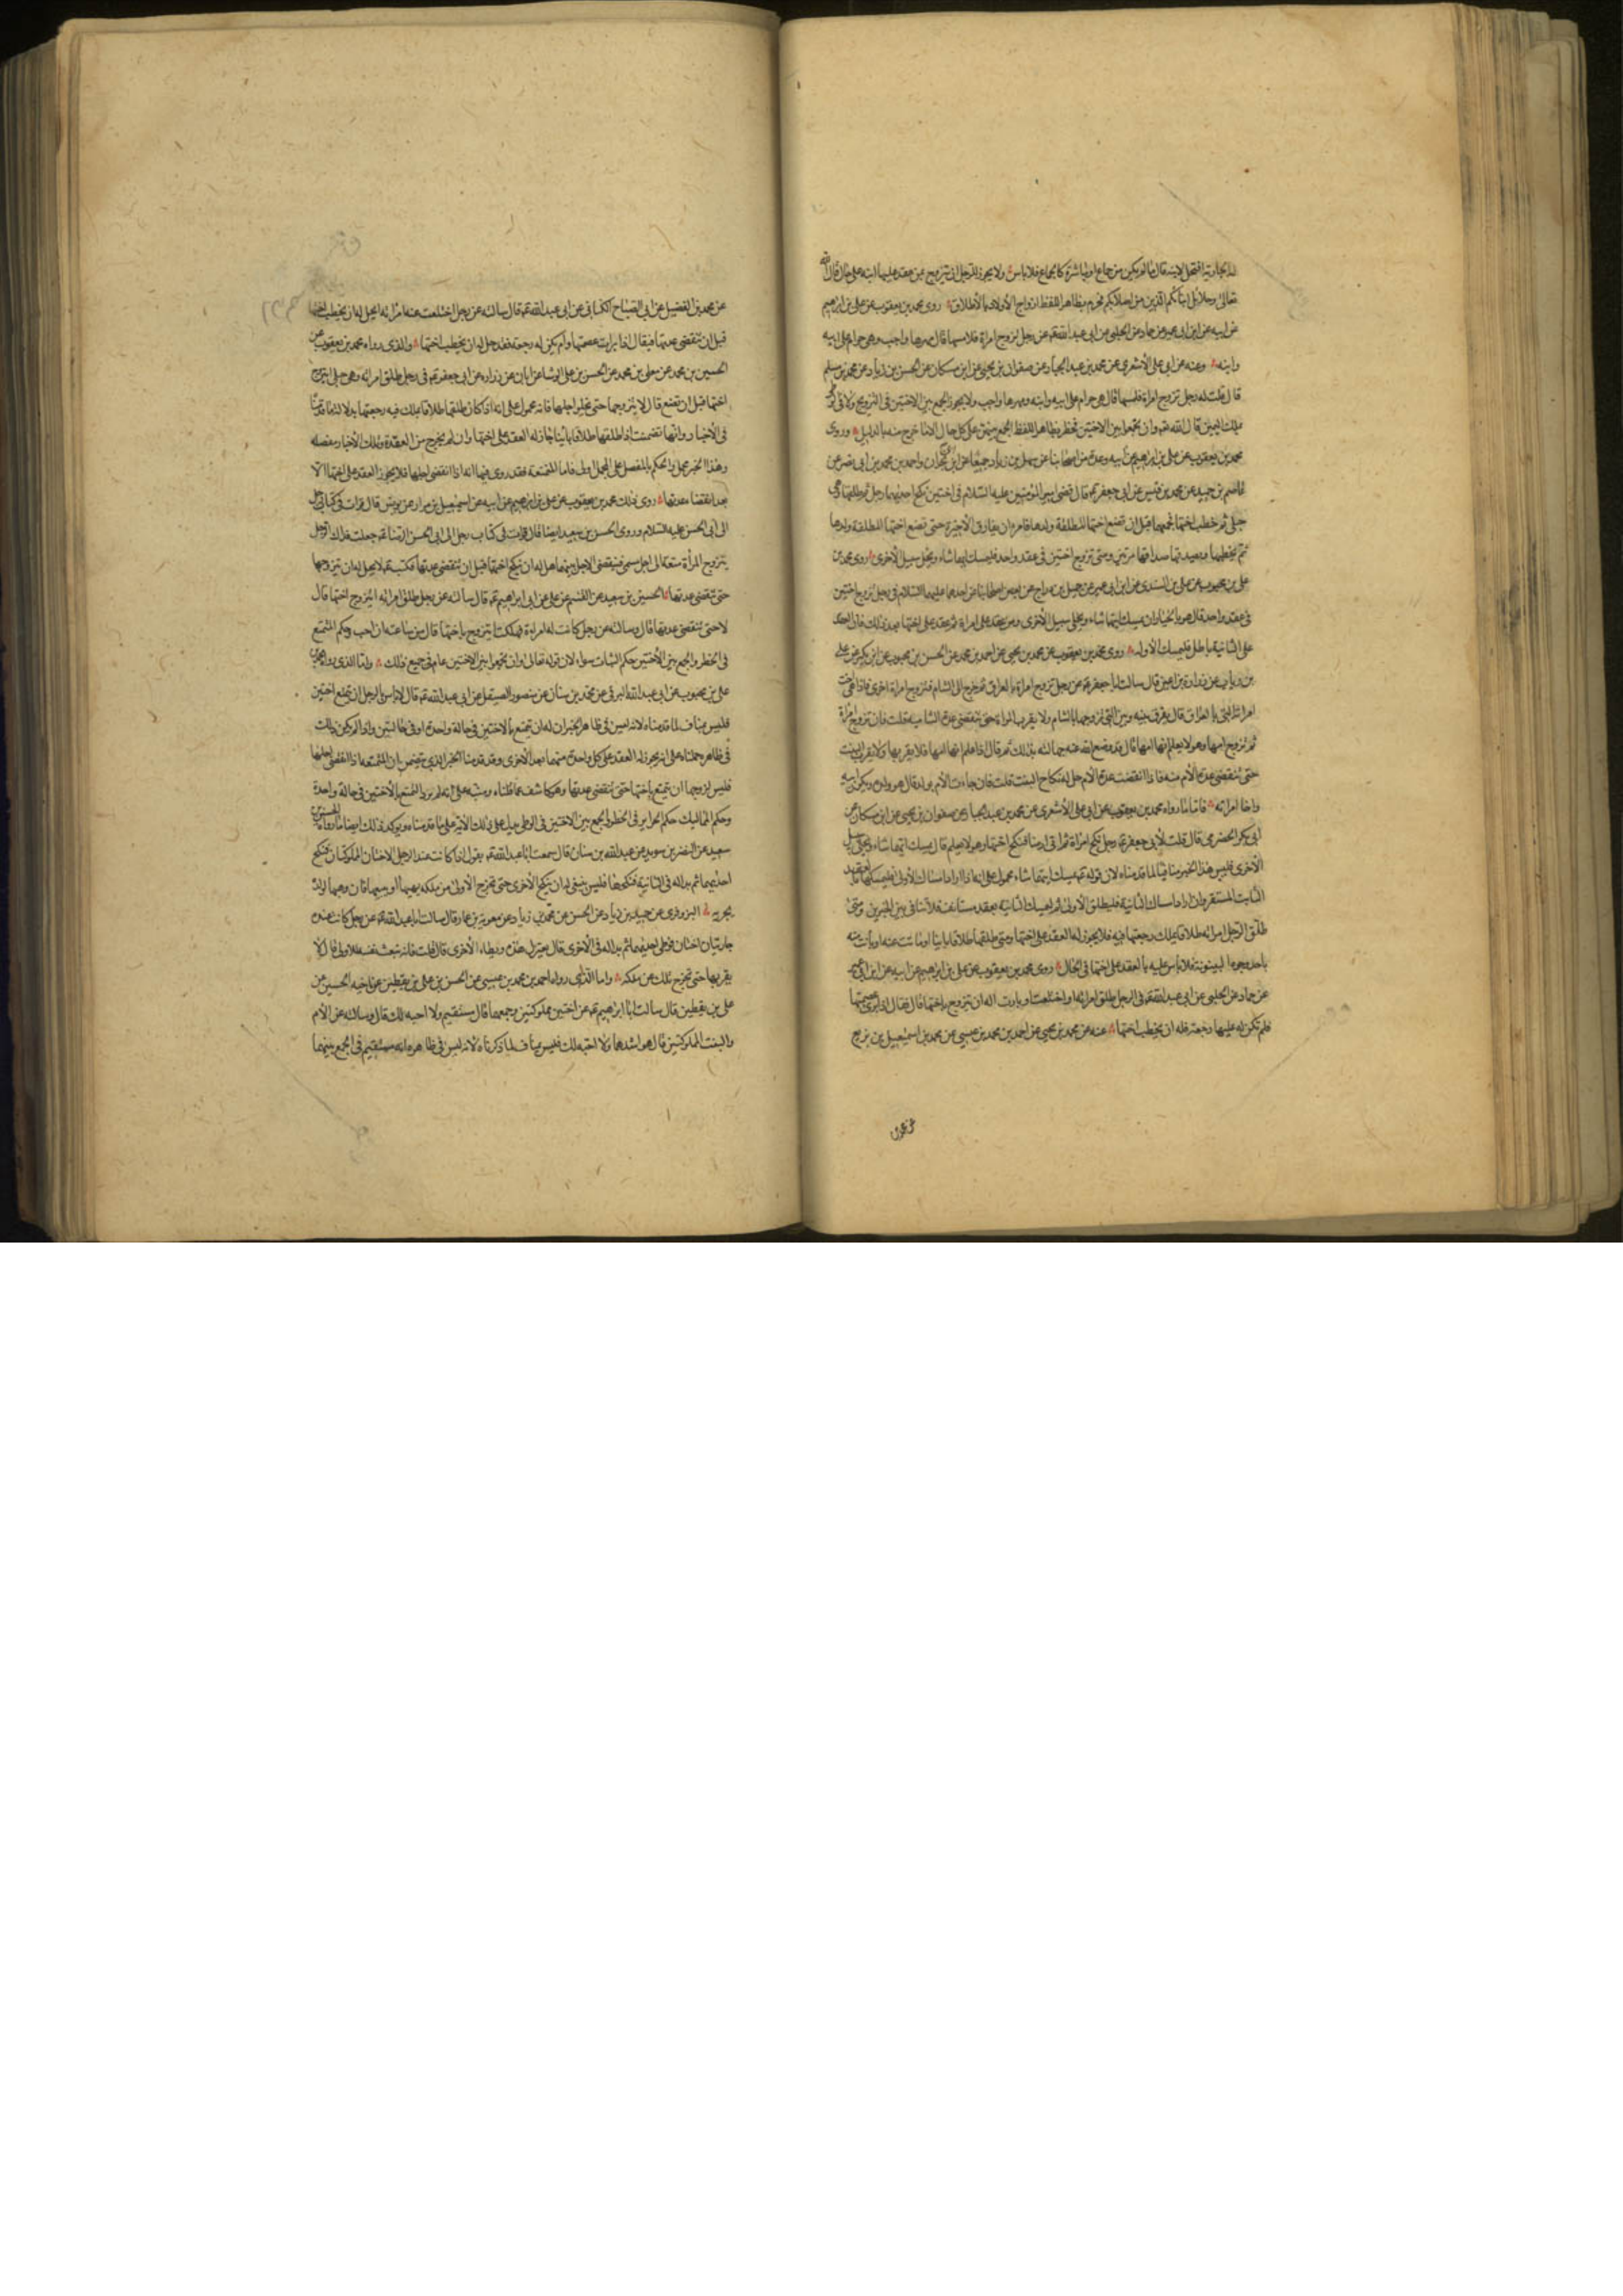 له الجارية افتحل لابنه قال ما لم يكن من جماع او مباشرة كالجماع فلا باس ولا يجوز للرجل ان يتزوج من عقد عليها ابنه على حال قال الله
تعالى وحلائل ابنائكم الذين من اصلابكم فحرم بظاهر اللفظ ازواج الاولاد بالاطلاق روى محمد بن يعقوب عن علي بن ابرهيم
عن ابيه عن ابن ابي عمير عن حماد عن الحلبي عن ابي عبد الله ع عن رجل تزوج امراة فلامسها قال مهرها واجب وهي حرام على ابيه
وابنه وعنه عن ابي علي الاشعري عن محمد بن عبد الجبار عن صفوان بن يحيى عن ابن مسكان عن الحسن بن زياد عن محمد بن مسلم
قال قلت له رجل تزوج امراة فلمسها قال هي حرام على ابيه وابنه ومهرها واجب ولا يجوز الجمع بين الاختين في التزويج ولا في
ملك اليمين قال الله تعالى وان تجمعوا بين الاختين فحظر بظاهر اللفظ الجمع بينهن على كل حال الا ما خرج منه بالدليل وروى
محمد بن يعقوب عن علي بن ابرهيم عن ابيه وعدة من اصحابنا عن سهل بن زياد جميعا عن ابن ابي نجران واحمد بن محمد بن ابي نصر عن
عاصم بن حميد عن محمد بن قيس عن ابي جعفر ع قال قضى امير المؤمنين عليه السلام في اختين نكح احديهما رجل ثم طلقها وهي
حبلى ثم خطب اختها فجمعهما قبل ان تضع اختها المطلقة ولدها فامره ان يفارق الاخيرة حتى تضع اختها المطلقة ولدها
ثم يخطبها ويصدقها صداقها مرتين ومتى تزوج اختين في عقد واحد فليمسك ايهما شاء ويخل سبيل الاخرى روى محمد بن
علي بن محبوب عن علي بن السندي عن ابن ابي عمير عن جميل بن دراج عن بعض اصحابنا عن احدهما عليهما السلام في رجل تزوج اختين
في عقد واحد قال هو بالخيار ان يمسك ايتهما شاء ويخلي سبيل الاخرى ومن عقد على امراة ثم عقد على اختها بعد ذلك فان العقد
على الثانية باطل فليمسك الاولة روى محمد بن يعقوب عن محمد بن يحيى عن احمد بن محمد عن الحسن بن محبوب عن ابن بكير عن علي
بن رياب عن زرارة بن اعين قال سالت ابا جعفر ع عن رجل تزوج امراة بالعراق ثم خرج الى الشام فتزوج امراة اخرى فاذا هي اخت
امراته التي بالعراق قال يفرق بينه وبين التي تزوجها بالشام ولا يقرب المراة حتى تنقضي عدة الشامية قلت فان تزوج امراة
ثم تزوج امها وهو لا يعلم انها امها قال قد وضع الله عنه جهالته بذلك ثم قال اذا علم انها امها فلا يقربها ولا يقرب البنت
حتى تنقضي عدة الام منه فاذا انقضت عدة الام حل له نكاح البنت قلت فان جاءت الام بولد قال هو ولده ويكون ابنه
واخا امراته فاما ما رواه محمد بن يعقوب عن ابي علي الاشعري عن محمد بن عبد الجبار عن صفوان بن يحيى عن ابن مسكان عن
ابي بكر الحضرمي قال قلت لابي جعفر ع رجل نكح امراة ثم اتى ارضا فنكح اختها وهو لا يعلم قال يمسك ايتهما شاء ويخلي سبيل
الاخرى فليس هذا الخبر منافيا لما قدمناه لان قوله ع يمسك ايتهما شاء محمول على انه اذا اراد امساك الاولى فليمسكها بالعقد
الثابت المستقر وان اراد امساك الثانية فليطلق الاولى ثم ليمسك الثانية بعقد مستانف فلا تنافي بين الخبرين ومتى
طلق الرجل امراته طلاقا يملك رجعتها فيه فلا يجوز له العقد على اختها ومتى طلقها طلاقا باينا او ماتت عنه او بانت منه
باحد وجوه البينونة فلا باس عليه بالعقد على اختها في الحال روى محمد بن يعقوب عن علي بن ابرهيم عن ابيه عن ابن ابي عمير
عن حماد عن الحلبي عن ابي عبد الله ع في الرجل طلق امراته او اختلعت او بارت اله ان يتزوج باختها قال فقال اذا برئ عصمتها
فلم تكن له عليها رجعة فله ان يخطب اختها عنه عن محمد بن يحيى عن احمد بن محمد بن عيسى عن محمد بن اسمعيل بن بزيع
عن محمد بن الفضيل عن ابي الصباح الكناني عن ابي عبد الله ع قال سالته عن رجل اختلعت عنه امراته ايحل له ان يخطب اختها
قبل ان تنقضي عدتها فقال اذا برات عصمتها ولم يكن له رجعة فقد حل له ان يخطب اختها والذي رواه محمد بن يعقوب عن
الحسين بن محمد عن معلى بن محمد عن الحسن بن علي الوشا عن ابان عن زرارة عن ابي جعفر ع في رجل طلق امراته وهي حبلى ايتزوج
اختها قبل ان تضع قال لا يتزوجها حتى يخلو اجلها فانه محمول على انه اذا كان طلقها طلاقا يملك فيه رجعتها بدلالة ما قدمنا
في الاخبار وانها تضمنت اذا طلقها طلاقا باينا جاز له العقد على اختها وان لم يخرج من العدة وتلك الاخبار مفصلة
وهذا الخبر مجمل والحكم بالمفصل على المجمل اولى فاما المتمتعة فقد روى فيها انه اذا انقضى اجلها فلا يجوز العقد على اختها الا
بعد انقضاء عدتها روى ذلك محمد بن يعقوب عن علي بن ابرهيم عن ابيه عن اسمعيل بن مرار عن يونس قال قرات في كتاب رجل
الى ابي الحسن عليه السلام وروى الحسن بن سعيد ايضا قال قرات في كتاب رجل الى ابي الحسن الرضا ع جعلت فداك الرجل
يتزوج المراة متعة الى اجل مسمى فينقضي الاجل بينهما هل له ان ينكح اختها قبل ان تنقضي عدتها فكتب ع لا يحل له ان يتزوجها
حتى تنقضي عدتها الحسين بن سعيد عن القسم عن علي عن ابي ابراهيم ع قال سالته عن رجل طلق امراته ايتزوج اختها قال
لا حتى تنقضي عدتها قال وسالته عن رجل كانت له امراة فهلكت ايتزوج باختها قال من ساعته ان احب وحكم المتمتع
في الحظر والجمع بين الاختين حكم البتات سواء لان قوله تعالى وان تجمعوا بين الاختين عام في جميع ذلك واما الذي رواه محمد
علي بن محبوب عن ابي عبد الله البرقي عن محمد بن سنان عن منصور الصيقل عن ابي عبد الله ع قال لا باس بالرجل ان يتمتع اختين
فليس بمناف لما قدمناه لانه ليس في ظاهر الخبر ان له ان يتمتع بالاختين في حالة واحدة او في حالتين واذا لم يكن ذلك
في ظاهره حملناه على انه يجوز له العقد على كل واحدة منهما بعد الاخرى وقد قدمنا الخبر الذي يتضمن ان المتمتعة اذا انقضى اجلها
فليس لزوجها ان يتمتع باختها حتى تنقضي عدتها وهو كاشف عما قلناه ومنبه على انه لم يرد التمتع بالاختين في حالة واحدة
وحكم المماليك حكم الحراير في الحظر والجمع بين الاختين في الوطي يدل على ذلك الاية على ما قدمناه ويؤكد ذلك ايضا ما رواه الحسين بن
سعيد عن النضر بن سويد عن عبد الله بن سنان قال سمعت ابا عبد الله ع يقول اذا كانت عند الرجل الاختان المملوكتان فنكح
احديهما ثم بدا له في الثانية فنكحها فليس ينبغي له ان ينكح الاخرى حتى تخرج الاولى من ملكه يهبها او يبيعها فان وهبها لولده
يجزيه البزوفري عن حميد بن زياد عن الحسن عن محمد بن زياد عن معوية بن عمار قال سالت ابا عبد الله ع عن رجل كانت عنده
جاريتان اختان فوطى احديهما ثم بدا له في الاخرى قال يعتزل هذه ويطاء الاخرى قال قلت فانه تنبعث نفسه للاولى قال لا
يقربها حتى تخرج تلك من ملكه واما الذي رواه احمد بن محمد بن عيسى عن الحسن بن علي بن يقطين عن اخيه الحسين عن
علي بن يقطين قال سالت ابا ابراهيم ع عن اختين مملوكتين وجمعهما قال مستقيم ولا احبه لك قال وسالته عن الام
والبنت المملوكتين قال هو اشدهما ولا احبه لك فليس بمناف لما ذكرناه لانه ليس في ظاهره انه مستقيم في الجمع بينهما